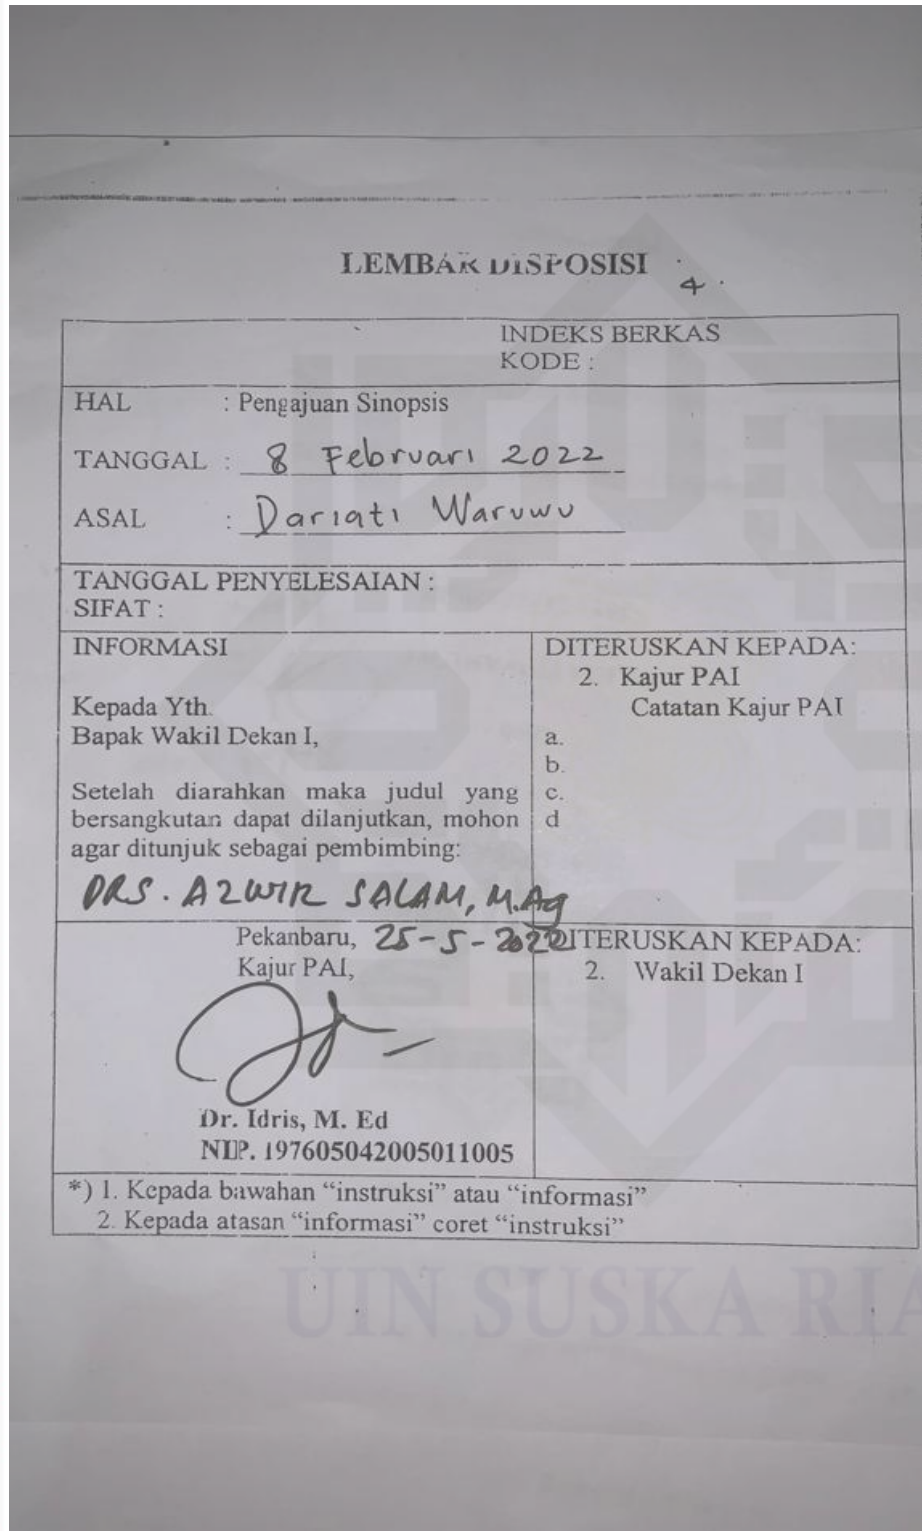 LEMBAR DISPOSISI
4
INDEKS BERKAS
KODE :
HAL : Pengajuan Sinopsis
TANGGAL : 8 Februari 2022
ASAL : Dariati Waruwu
TANGGAL PENYELESAIAN :
SIFAT :
INFORMASI
Kepada Yth.
Bapak Wakil Dekan I,
Setelah diarahkan maka judul yang
bersangkutan dapat dilanjutkan, mohon
agar ditunjuk sebagai pembimbing:
DRS. AZWIR SALAM, M.Ag
DITERUSKAN KEPADA:
2. Kajur PAI
Catatan Kajur PAI
a.
b.
c.
d
Pekanbaru, 25-5-2022
Kajur PAI,
Dr. Idris, M. Ed
NIP. 197605042005011005
DITERUSKAN KEPADA:
2. Wakil Dekan I
*) 1. Kepada bawahan “instruksi” atau “informasi”
2. Kepada atasan “informasi” coret “instruksi”
UIN SUSKA RIA